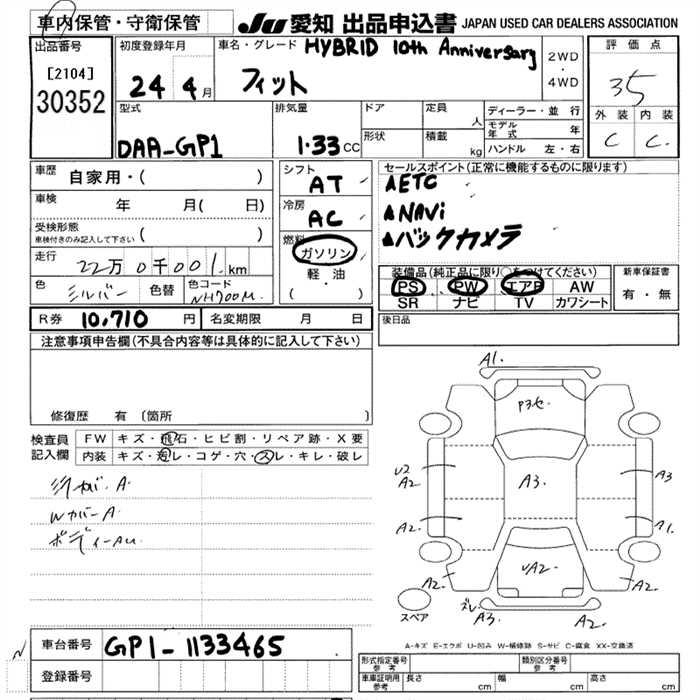 車内保管・守衛保管
JU 愛知 出品申込書 JAPAN USED CAR DEALERS ASSOCIATION
出品番号
[2104]
30352
初度登録年月
24 4月
車名・グレード HYBRID 10th Anniversary
フィット
2WD
・
4WD
評価点
35
外装 内装
C C
型式
DAA-GP1
排気量
1.33 CC
ドア
形状
定員 人
積載 kg
ディーラー・並行
モデル年式 年
ハンドル 左・右
車歴
自家用・( )
車検 年 月( 日)
受検形態
車検付きのみ記入して下さい ( )
走行 22万0千001 km
色 シルバー 色替 色コード NH700M
シフト
AT
冷房
AC
燃料
ガソリン
軽・油
( ・ )
セールスポイント(正常に機能するものに限ります)
▲ETC
▲NAVi
▲バックカメラ
装備品(純正品に限り○をつけてください)
PS PW エアB AW
SR ナビ TV カワシート
新車保証書
有・無
R券 10,710 円 名変期限 月 日
後日品
注意事項申告欄(不具合内容等は具体的に記入して下さい)
修復歴 有 (箇所
検査員
記入欄
FW キズ・飛石・ヒビ割・リペア跡・X要
内装 キズ・汚レ・コゲ・穴・スレ・キレ・破レ
ミラカバ-A
WカバーA
ボディーAU
A1
A3
A3
U2
A2
A2
A2
A1
UA2
A2
スペア
ズレ
A3
A2
A-キズ E-エクボ U-凹み W-補修跡 S-サビ C-腐食 XX-交換済
車台番号 GP1-1133465
登録番号
N
形式指定番号
参考
類別区分番号
参考
車庫証明用
参考
長さ cm 幅 cm 高さ cm